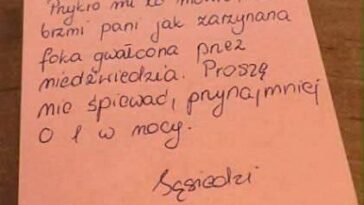 Przykro mi to mówić,
brzmi pani jak zarzynana
foka gwałcona przez
niedźwiedzia. Proszę
nie śpiewać, przynajmniej
o 1 w nocy.
Sąsiedzi